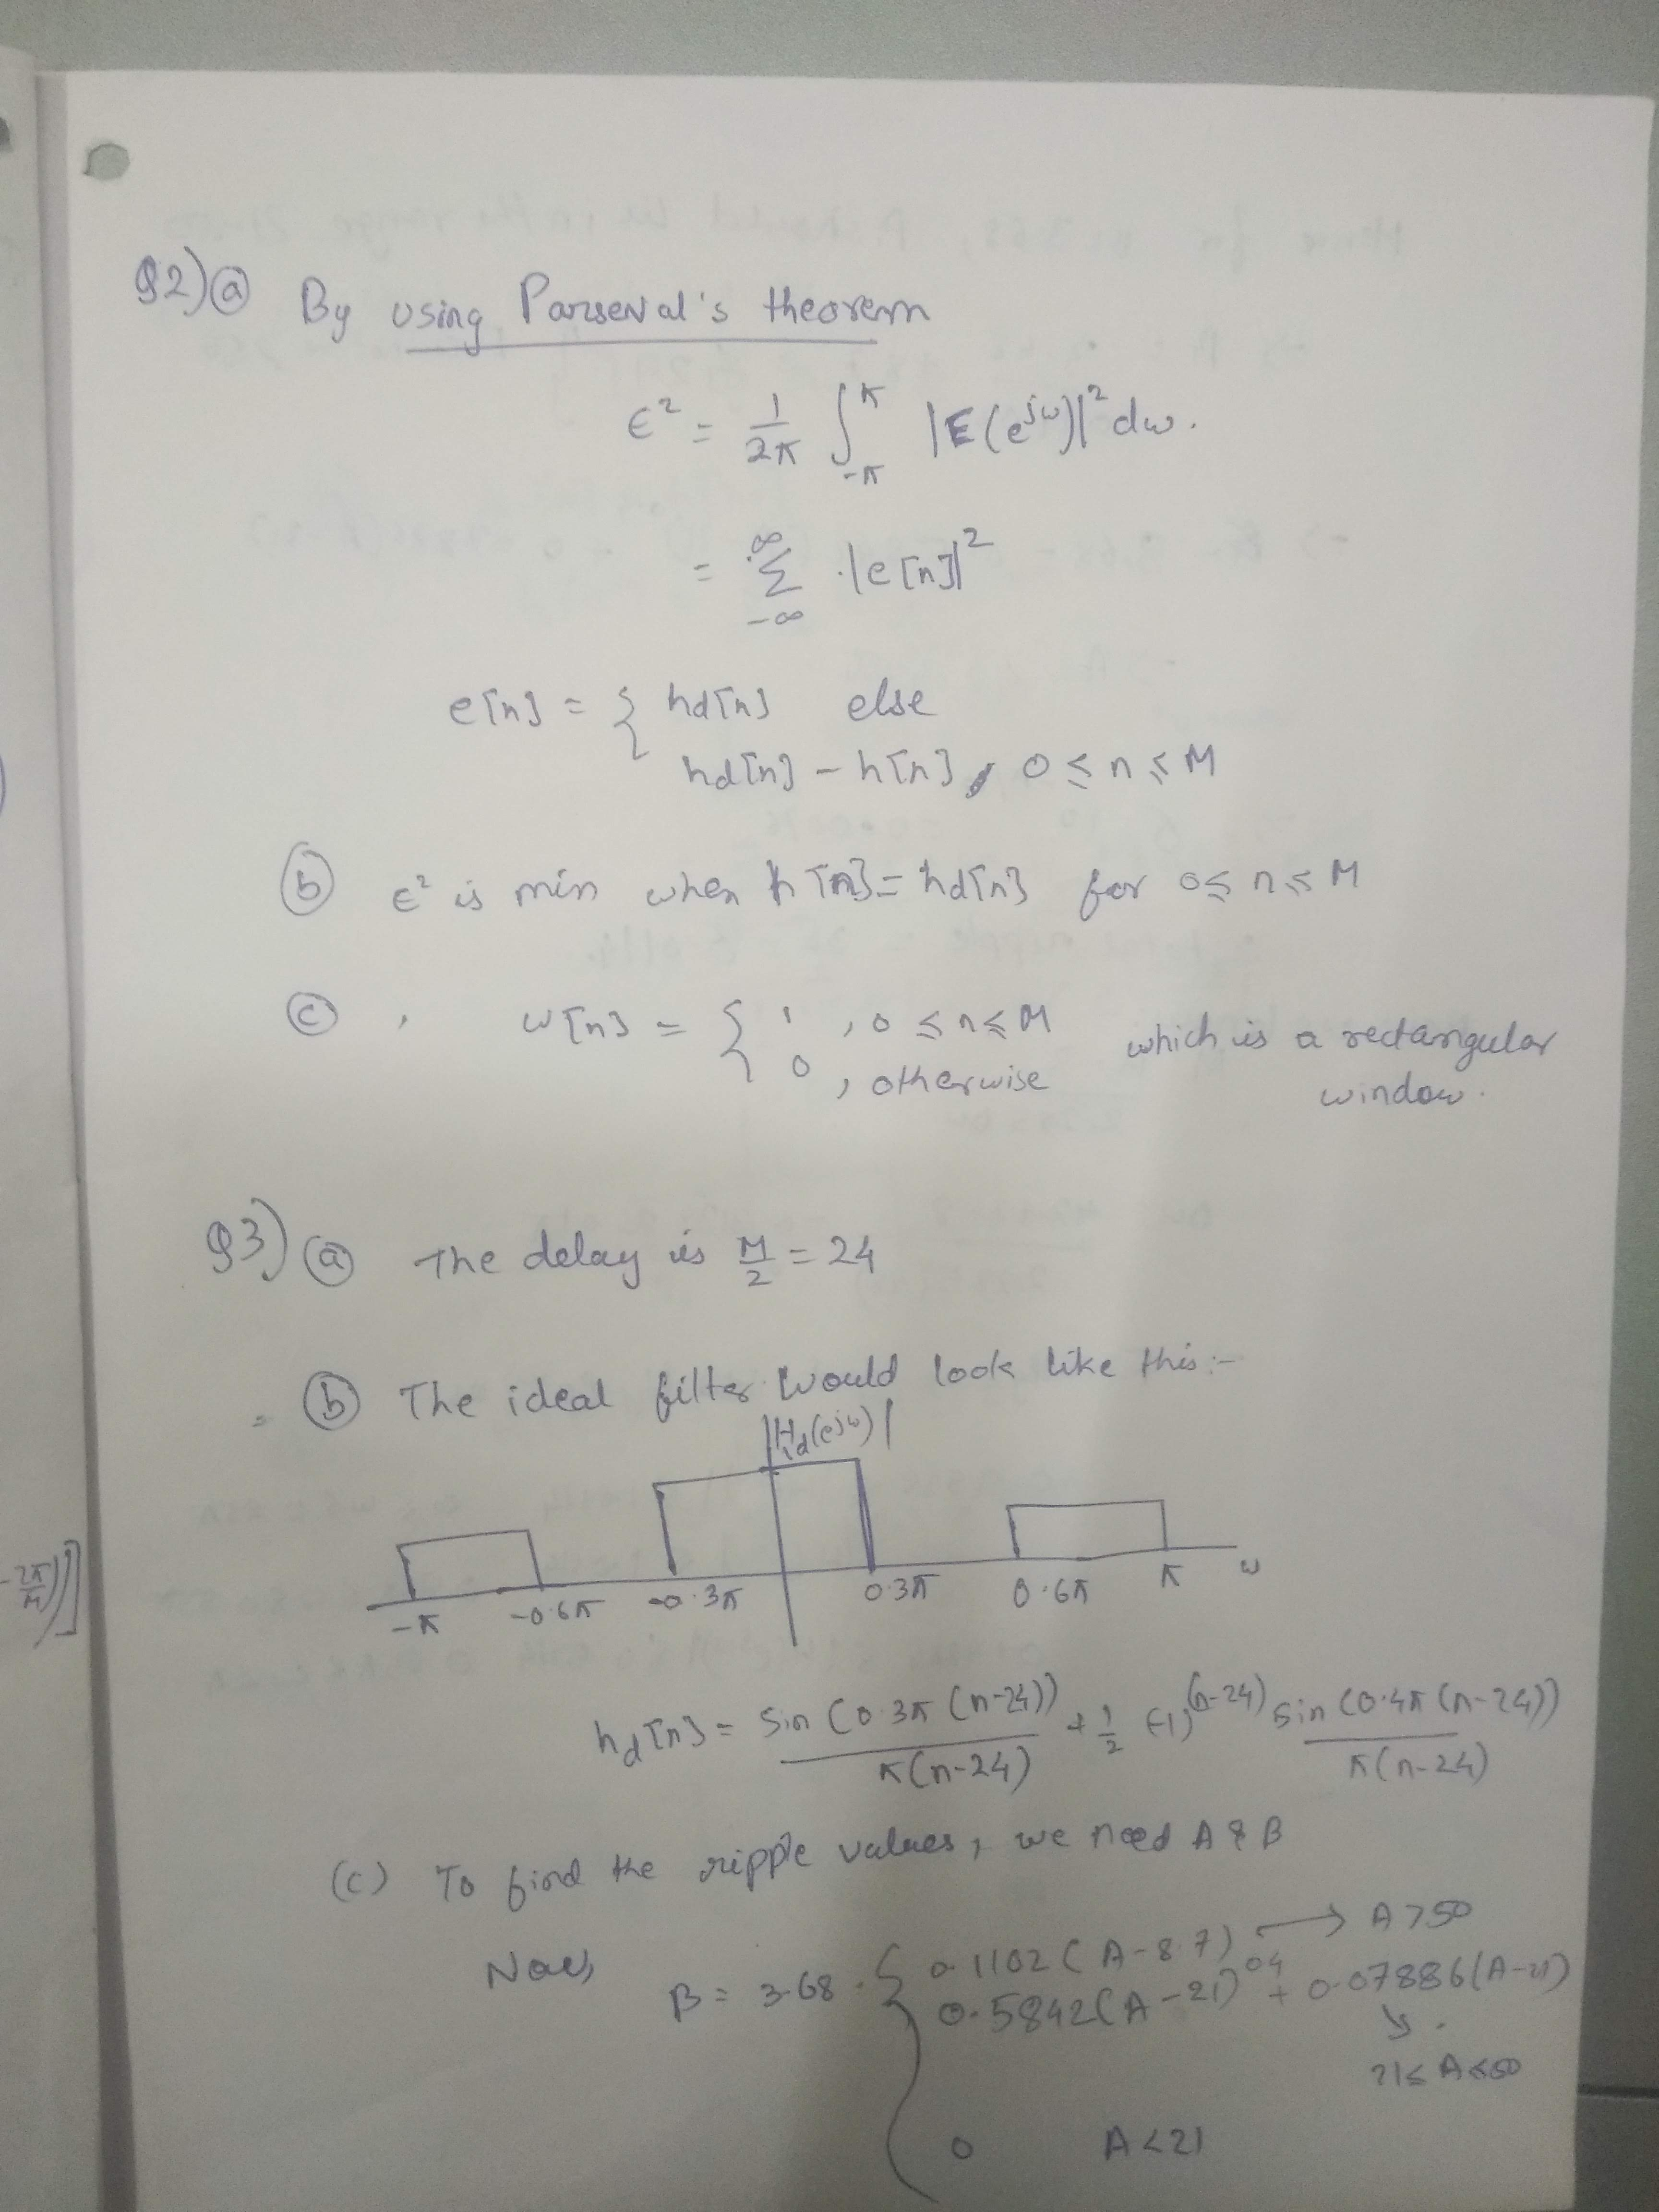 Q2) ⓐ By using Parseval's theorem
ε² = 1/2π ∫_{-π}^{π} |E(e^{jω})|² dω.
= Σ_{-∞}^{∞} |e[n]|²
e[n] = { hd[n] else
hd[n] - h[n], 0 ≤ n ≤ M
ⓑ ε² is min when h[n] = hd[n] for 0 ≤ n ≤ M
ⓒ , w[n] = { 1 , 0 ≤ n ≤ M which is a rectangular
0 , otherwise window.
Q3) ⓐ The delay is M/2 = 24
ⓑ The ideal filter would look like this:-
|Hd(e^{jω})|
-π -0.6π -0.3π 0.3π 0.6π π ω
hd[n] = sin(0.3π(n-24))/π(n-24) + 1/2 (-1)^{(n-24)} sin(0.4π(n-24))/π(n-24)
(c) To find the ripple values, we need A & B
Now, β = 3.68 { 0.1102(A-8.7) → A>50
0.5842(A-21)^{0.4} + 0.07886(A-21)
↘ 21≤A≤50
0 A<21
-2π/M)]